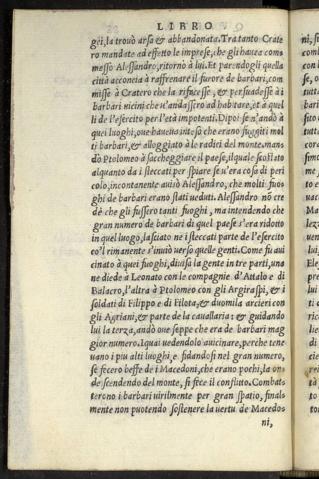 LIBRO
gei, la trouò arsa & abbandonata. Tra tanto Crate
ro mandate ad effetto le imprese, che gli hauea com-
messo Alessandro, ritornò à lui. Et parẽdogli quella
città acconcia à raffrenare il furore de barbari, com
misse à Cratero che la rifacesse, & persuadesse à i
barbari uicini che u'andassero ad habitare, et à quel
li de l'esercito per l'età impotenti. Dipoi se n'andò à
quei luoghi, oue haueua inteso che erano fuggiti mol
ti barbari, & alloggiato à le radici del monte, man-
dò Ptolomeo à saccheggiare il paese, il quale scostato
alquanto da i steccati per spiare se u'era cosa di peri
colo, incontanente auisò Alessandro, che molti fuo-
ghi de barbari erano stati ueduti. Alessandro nõ cre
dè che gli fussero tanti fuoghi, ma intendendo che
gran numero de barbari di quel paese s'era ridotto
in quel luogo, lasciato ne i steccati parte de l'esercito
co'l rimanente s'inuiò uerso quelle genti. Come fu aui
cinato à quei fuoghi, diuisa la gente in tre parti, una
ne diede à Leonato con le compagnie d'Attalo e di
Balacro, l'altra à Ptolomeo con gli Argiraspi, & i
soldati di Filippo e di Filota, & duomila arcieri con
gli Agriani, & parte de la cauallaria: & guidando
lui la terza, andò oue seppe che era de barbari mag
gior numero. I quai uedendolo auicinare, perche tene-
uano i piu alti luoghi, e fidandosi nel gran numero,
se fecero beffe de i Macedoni, che erano pochi, la on-
de scendendo del monte, si fece il conflitto. Combat-
terono i barbari uirilmente per gran spatio, final-
mente non puotendo sostenere la uertu de Macedo-
ni,